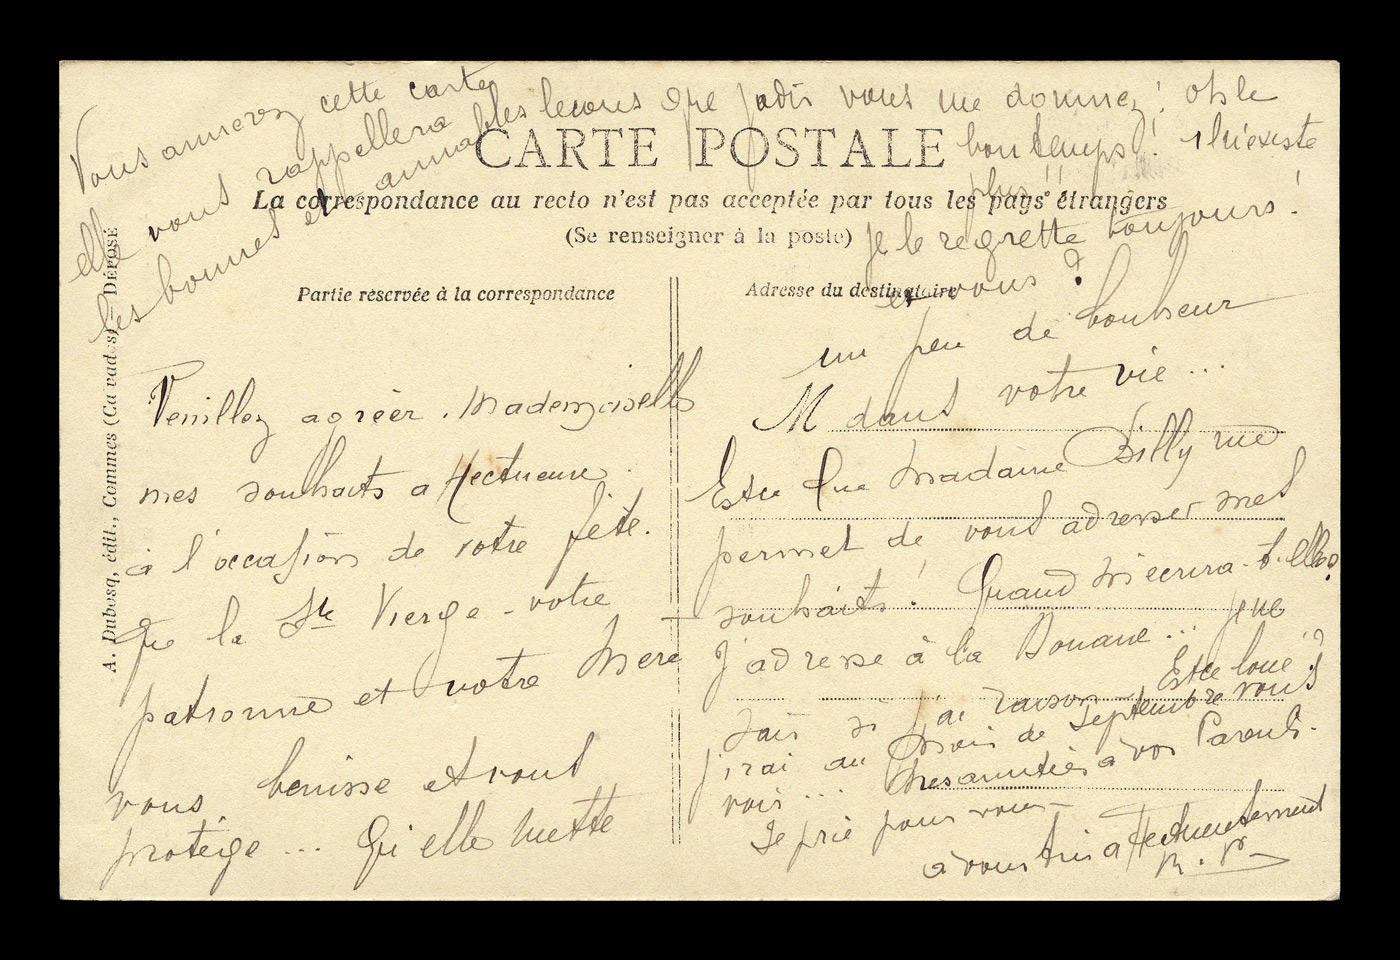 Vous aimerez cette carte
elle vous rappellera
les bonnes et aimables lecons que jadis vous me donniez! oh le
bon temps! il n'existe
plus!!
je le regrette toujours!
et vous?
CARTE POSTALE
La correspondance au recto n'est pas acceptée par tous les pays étrangers
(Se renseigner à la poste)
Partie réservée à la correspondance
Adresse du destinataire
A. Dubosq, édit., Commes (Calvados) — DÉPOSÉ
Veuillez agréer. Mademoiselle
mes souhaits affectueux
à l'occasion de votre fête.
Que la Ste Vierge - votre
patronne et votre Mère
vous bénisse et vous
protège... Qu'elle mette
un peu de bonheur
M dans votre vie...
Est ce que Madame Billy me
permet de vous adresser mes
souhaits! Quand m'écrira-t-elle?
J'adresse à la Douane... je ne
sais si j'ai raison - Est ce loué?
J'irai au mois de Septembre vous
voir... Mes amitiés à vos Parents.
Je prie pour vous -
à vous très affectueusement